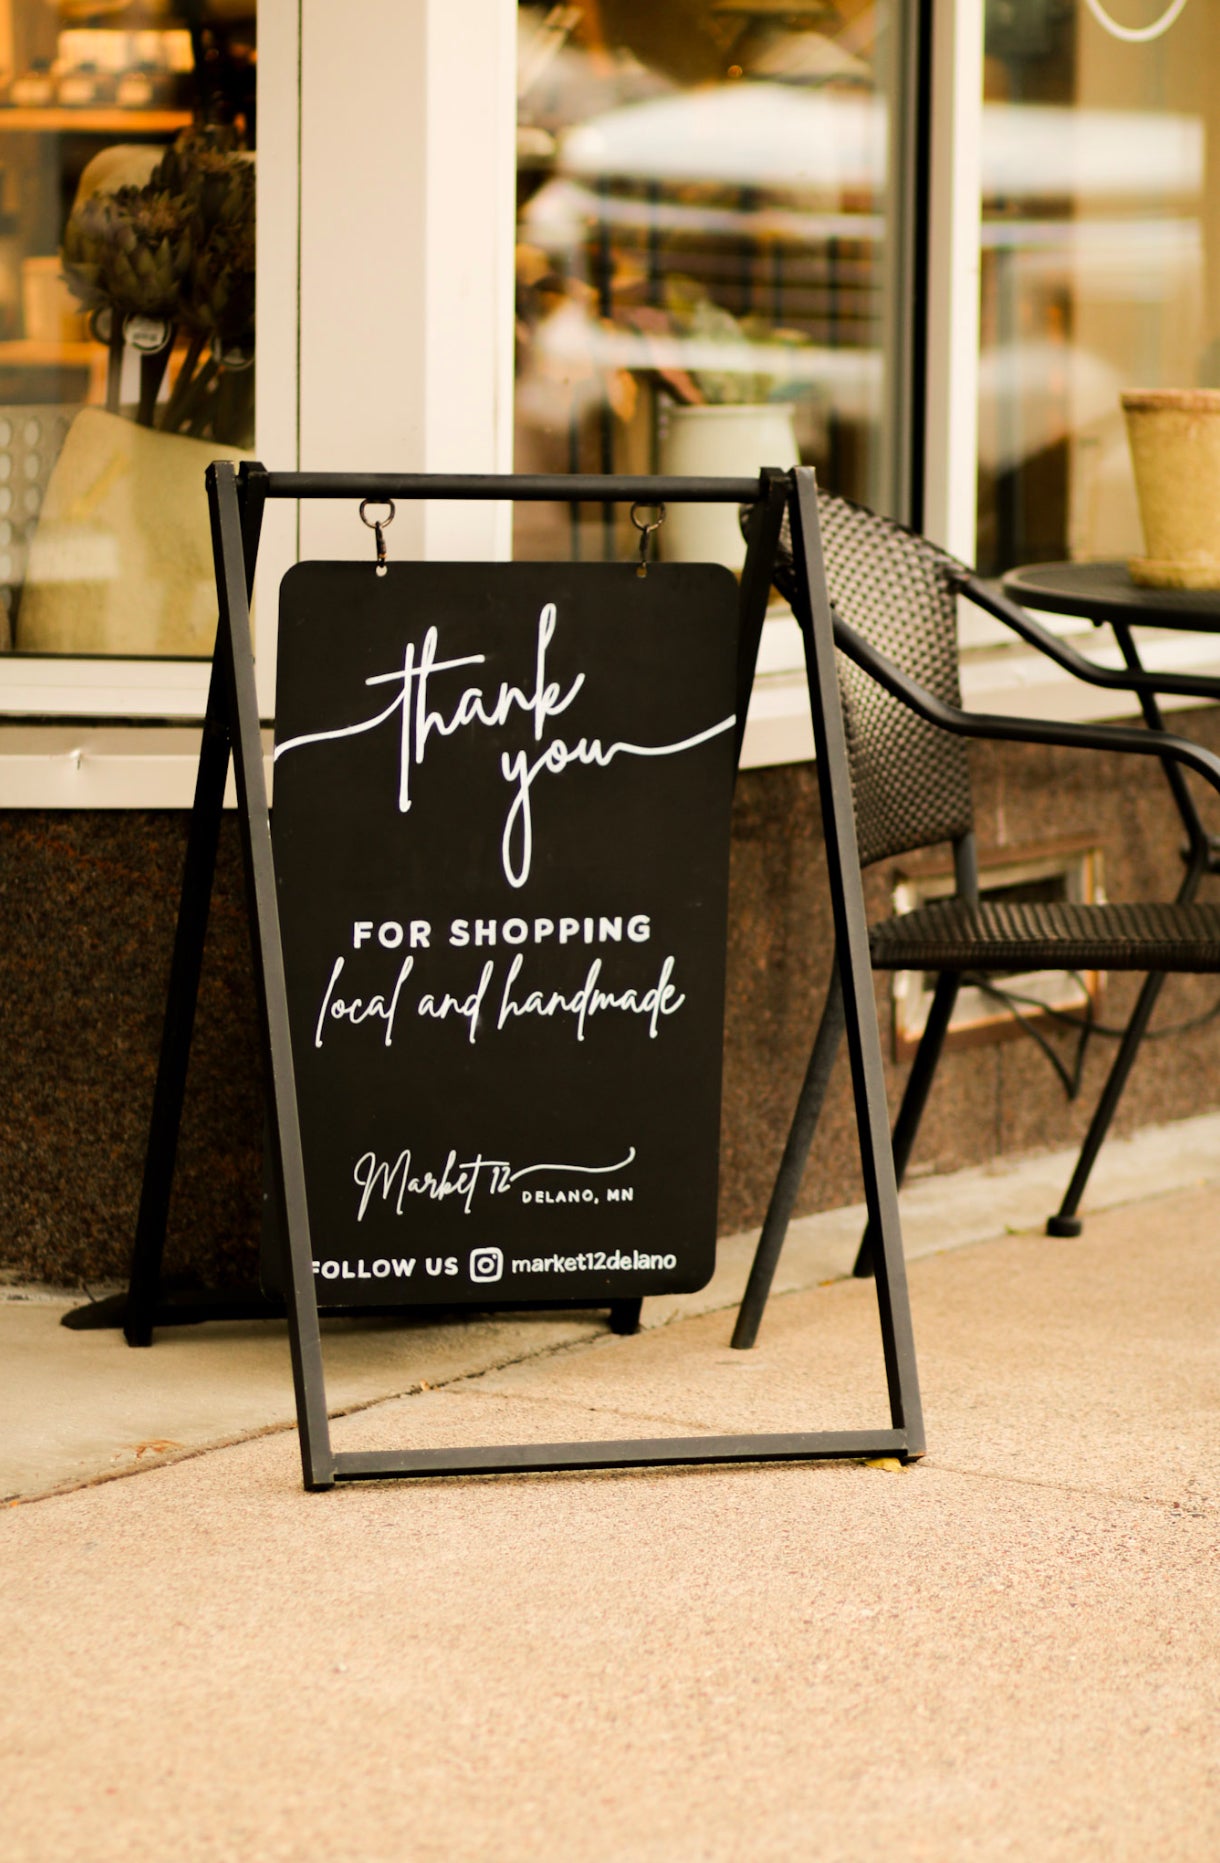 thank
you
FOR SHOPPING
local and handmade
Market 12
DELANO, MN
FOLLOW US market12delano